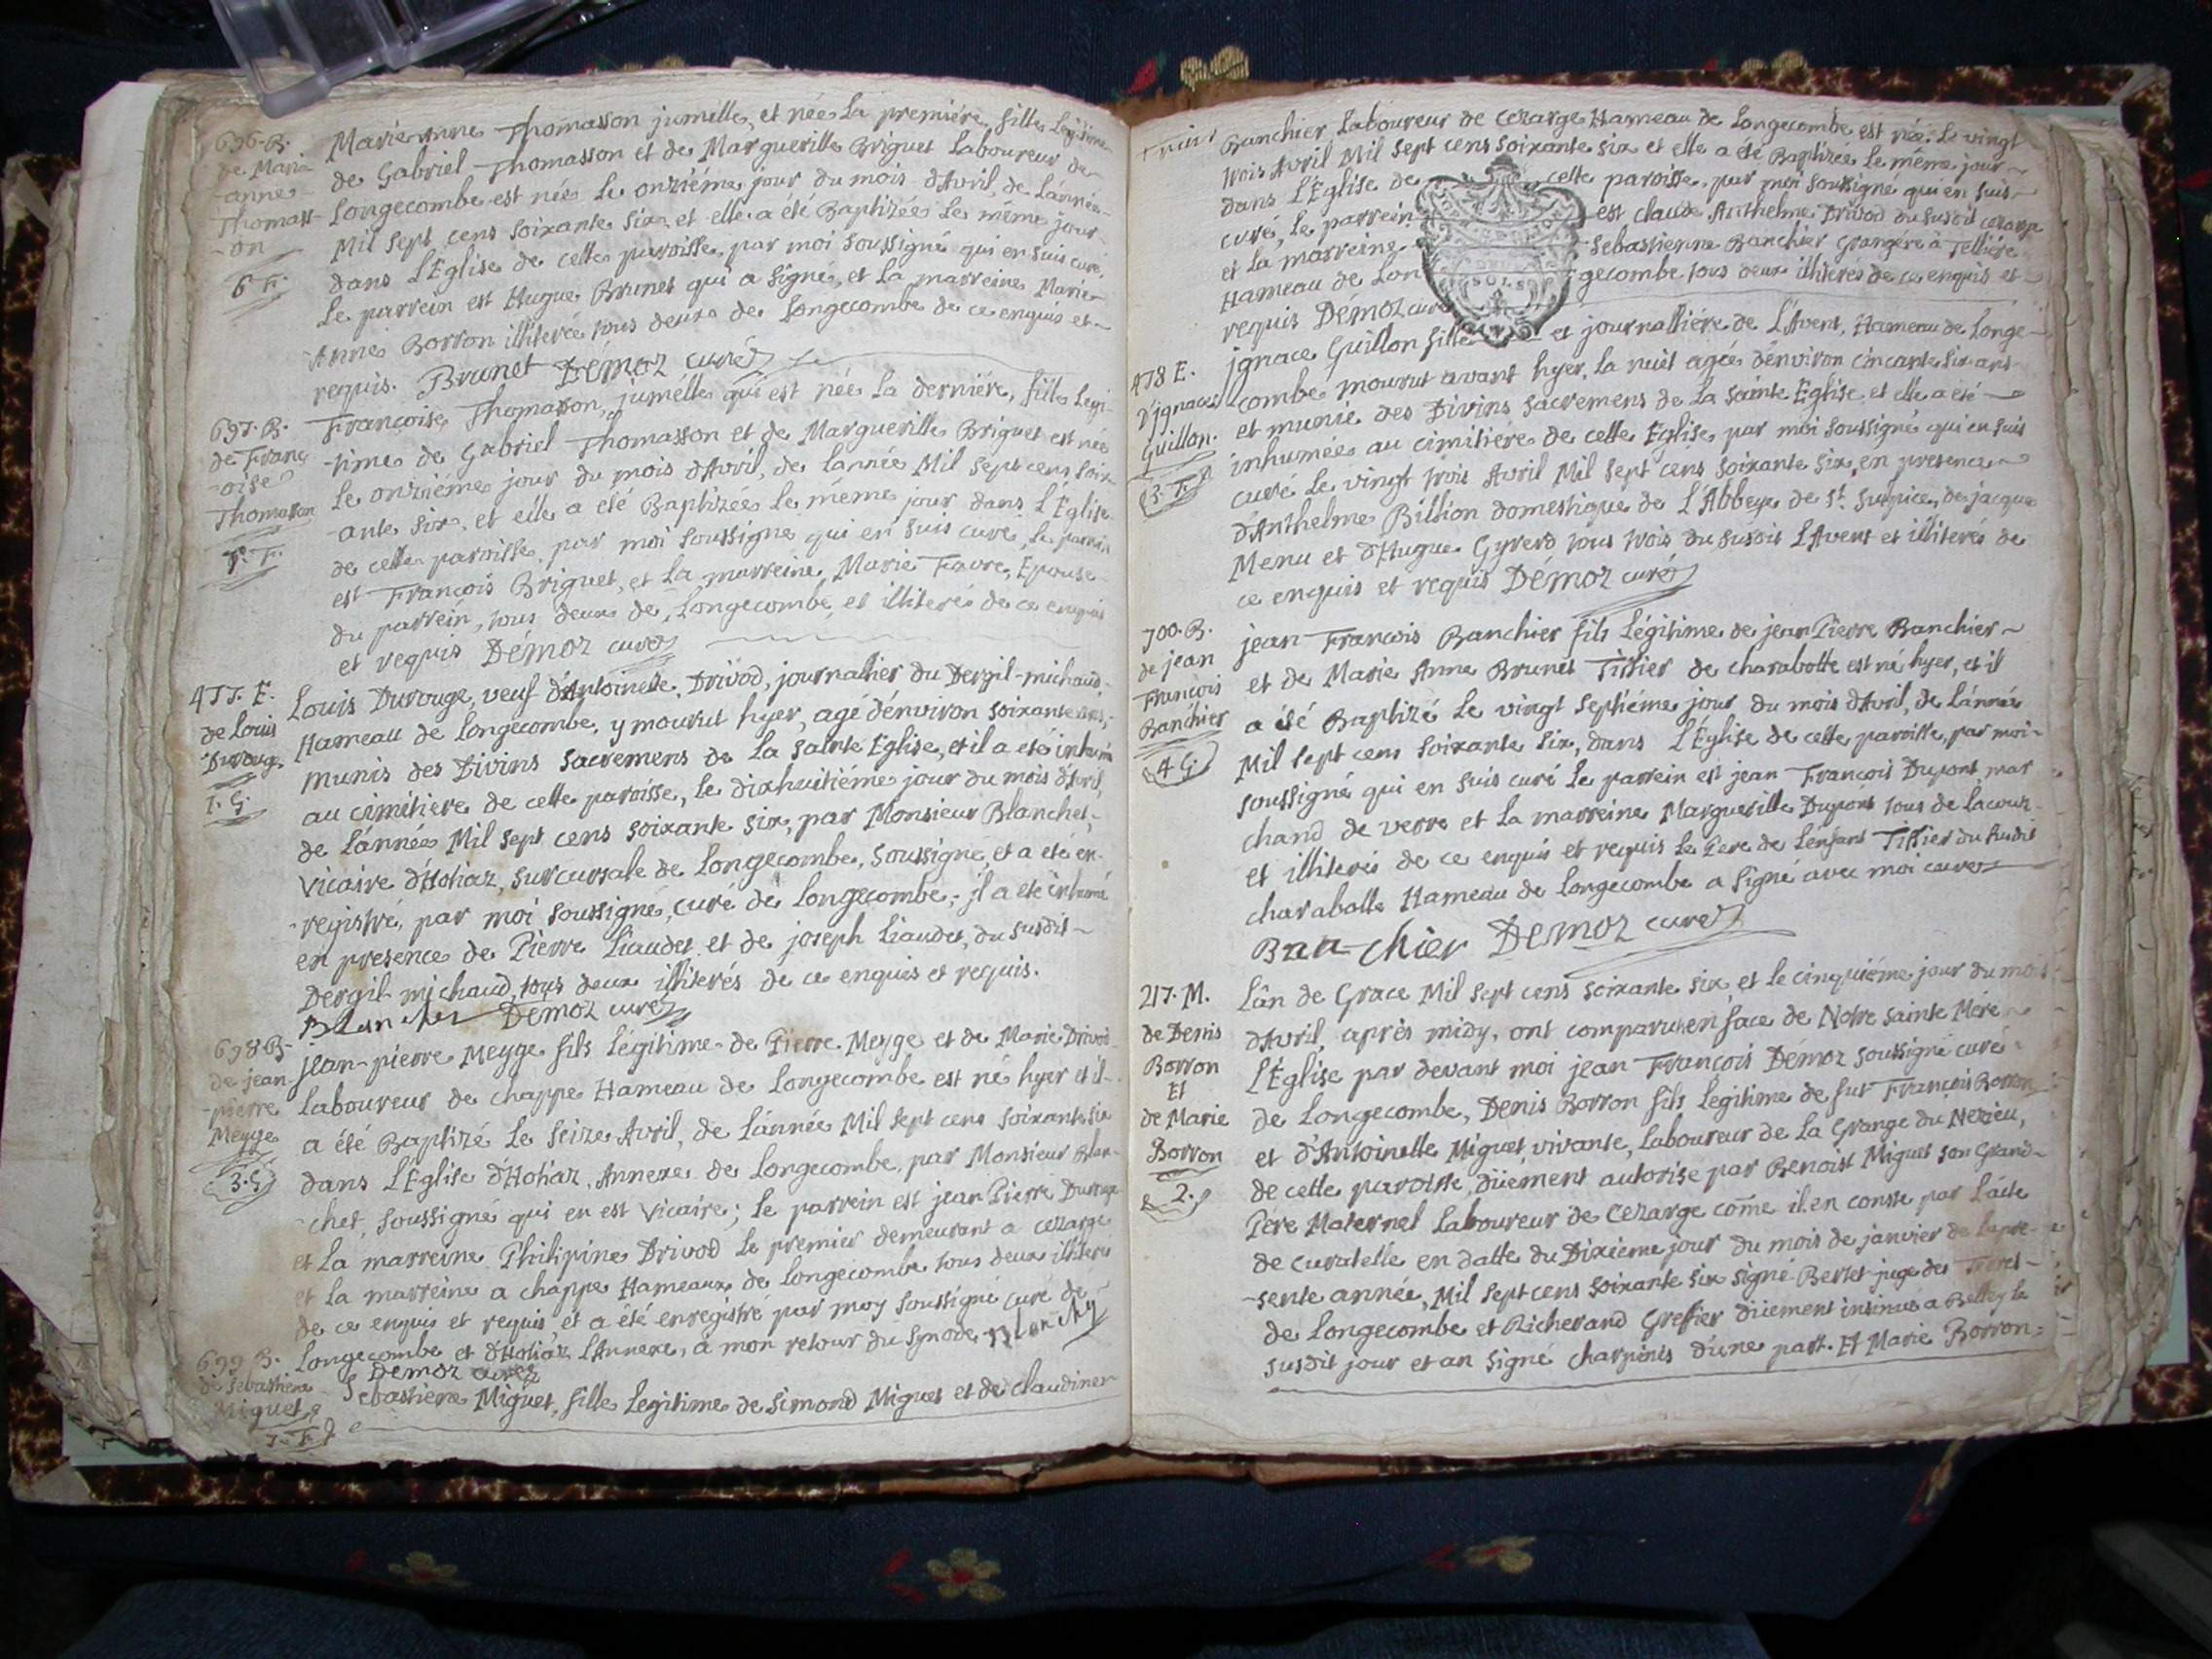 696. B.
de Marie
anne
Thomass-
-on
6 F.
Marie Anne Thomasson jumelle, et née la premiére, fille Legitime
de Gabriel Thomasson et de Marguerille Briguet Laboureur de
Longecombe est née Le onziéme jour du mois d'Avril, de L'année
Mil sept cens soixante six, et elle a été Baptizée Le même jour
dans L'Eglise de cette paroisse, par moi soussigné qui en suis curé,
Le parrein est Hugue Brunet qui a signé, et La marreine Marie
Anne Borron illiterée tous deux de Longecombe de ce enquis et
requis. Brunet Démoz curé
697. B.
de Franç
-oise
Thomasson
7. F.
Françoise Thomasson, jumélle qui est née La derniére, fille Legi-
-time de Gabriel Thomasson et de Marguerille Briguet est née
Le onziéme jour du mois d'Avril, de L'année Mil sept cens soix-
-ante six, et elle a été Baptizée Le même jour dans L'Eglise
de cette paroisse, par moi soussigné qui en suis curé, Le parrein
est François Briguet, et La marreine Marie Favre, Epouse
du parrein, tous deux de Longecombe, et illiterés de ce enquis
et requis Démoz curé
477. E.
de Louis
Durouge
7. G.
Louis Durouge, veuf d'Antoinette Drivod, journalier du Dergil-michaud,
Hameau de Longecombe, y mourut hyer, agé d'énviron soixante ans,
munis des Divins Sacremens de La sainte Eglise, et il a été inhumé
au cimitiére de cette paroisse, Le dixhuitiéme jour du mois d'Avril,
de L'année Mil sept cens soixante six, par Monsieur Blanchet,
vicaire d'Hotiaz, surcursale de Longecombe, soussigné, et a été en-
-registré, par moi soussigné, curé de Longecombe; il a été inhumé
en presence de Pierre Liaudet et de joseph Liaudet, du susdit
Dergil-michaud, tous deux illiterés de ce enquis et requis.
Blanchet Démoz curé
698 B.
de jean
-pierre
Meyge
3. G.
jean-pierre Meyge fils Légitime de Pierre Meyge et de Marie Drivod
Laboureur de chappe Hameau de Longecombe est né hyer et il
a été Baptizé Le seize Avril, de L'année Mil sept cens soixante six
dans L'Eglise d'Hotiaz, Annexe de Longecombe, par Monsieur Blan-
-chet, soussigné qui en est vicaire; Le parrein est jean Pierre Durouge
et La marreine Philipine Drivod Le premier demeurant a cezarge
et La marreine a chappe Hameaux de Longecombe tous deux illiterés
de ce enquis et requis et a été enregistré par moy soussigné curé de
Longecombe et d'Hotiaz L'Annexe, a mon retour du synode. Blanchet
Démoz curé
699 B.
de Sebastiene
Miguet
7. F.
Sebastiene Miguet, fille Legitime de Simond Miguet et de claudine
Banchier Laboureur de Cezarge Hameau de Longecombe est née Le vingt
trois Avril Mil sept cens soixante six et elle a été Baptizée Le même jour
dans L'Eglise de cette paroisse, par moi soussigné qui en suis
curé, Le parrein est claude Anthelme Drivod du susdit cezarge
et La marreine Sebastienne Banchier Grangére à Telliére
Hameau de Lon gecombe tous deux illiterés de ce enquis et
requis Démoz curé
478 E.
d'jgnace
Guillon.
3. F.
jgnace Guillon fille et journalliére de L'Avent, Hameau de Longe-
-combe mourut avant hyer, La nuit agée d'énviron cincante six ans
et munie des Divins sacremens de La sainte Eglise, et elle a été
inhumée au cimitiére de cette Eglise, par moi soussigné qui en suis
curé Le vingt trois Avril Mil sept cens soixante six, en presence
d'Anthelme Billion domestique de L'Abbeye de St. Sulpice, de jacque
Menu et d'Hugue Gyrerd tous trois du susdit L'Avent et illiterés de
ce enquis et requis Démoz curé
700. B.
de jean
François
Banchier
4 G.
jean François Banchier fils Légitime de jean Pierre Banchier
et de Marie Anne Brunet Tissier de charabotte est né hyer, et il
a été Baptizé Le vingt septiéme jour du mois d'Avril, de L'année
Mil sept cens soixante six, dans L'Eglise de cette paroisse, par moi
soussigné qui en suis curé Le parrein est jean François Dupont mar
chand de verre et La marreine Marguerille Dupont tous de Lacoux
et illiterés de ce enquis et requis Le Pere de L'énfant Tissier du susdit
charabotte Hameau de Longecombe a signé avec moi curé
Banchier Démoz curé
217. M.
de Denis
Borron
Et
de Marie
Borron
2.
L'ân de Grace Mil sept cens soixante six et le cinquiéme jour du mois
d'Avril, après midy, ont comparu en face de Notre sainte Mére
L'Église par devant moi jean François Démoz soussigné curé
de Longecombe, Denis Borron fils Legitime de fut François Borron
et d'Antoinette Miguet vivante, Laboureur de La Grange du Nezieu,
de cette paroisse, düement autorisé par Benoist Miguet son Grand-
Pére Maternel Laboureur de Cezarge com̄e il en conste par L'ácte
de curatelle en datte du Dixieme jour du mois de janvier de La pre-
-sente année, Mil sept cens soixante six signé Bertet juge des Terres
de Longecombe et Richerand Greffier düement insinué a Belley le
susdit jour et an signé charpines d'une part. Et Marie Borron